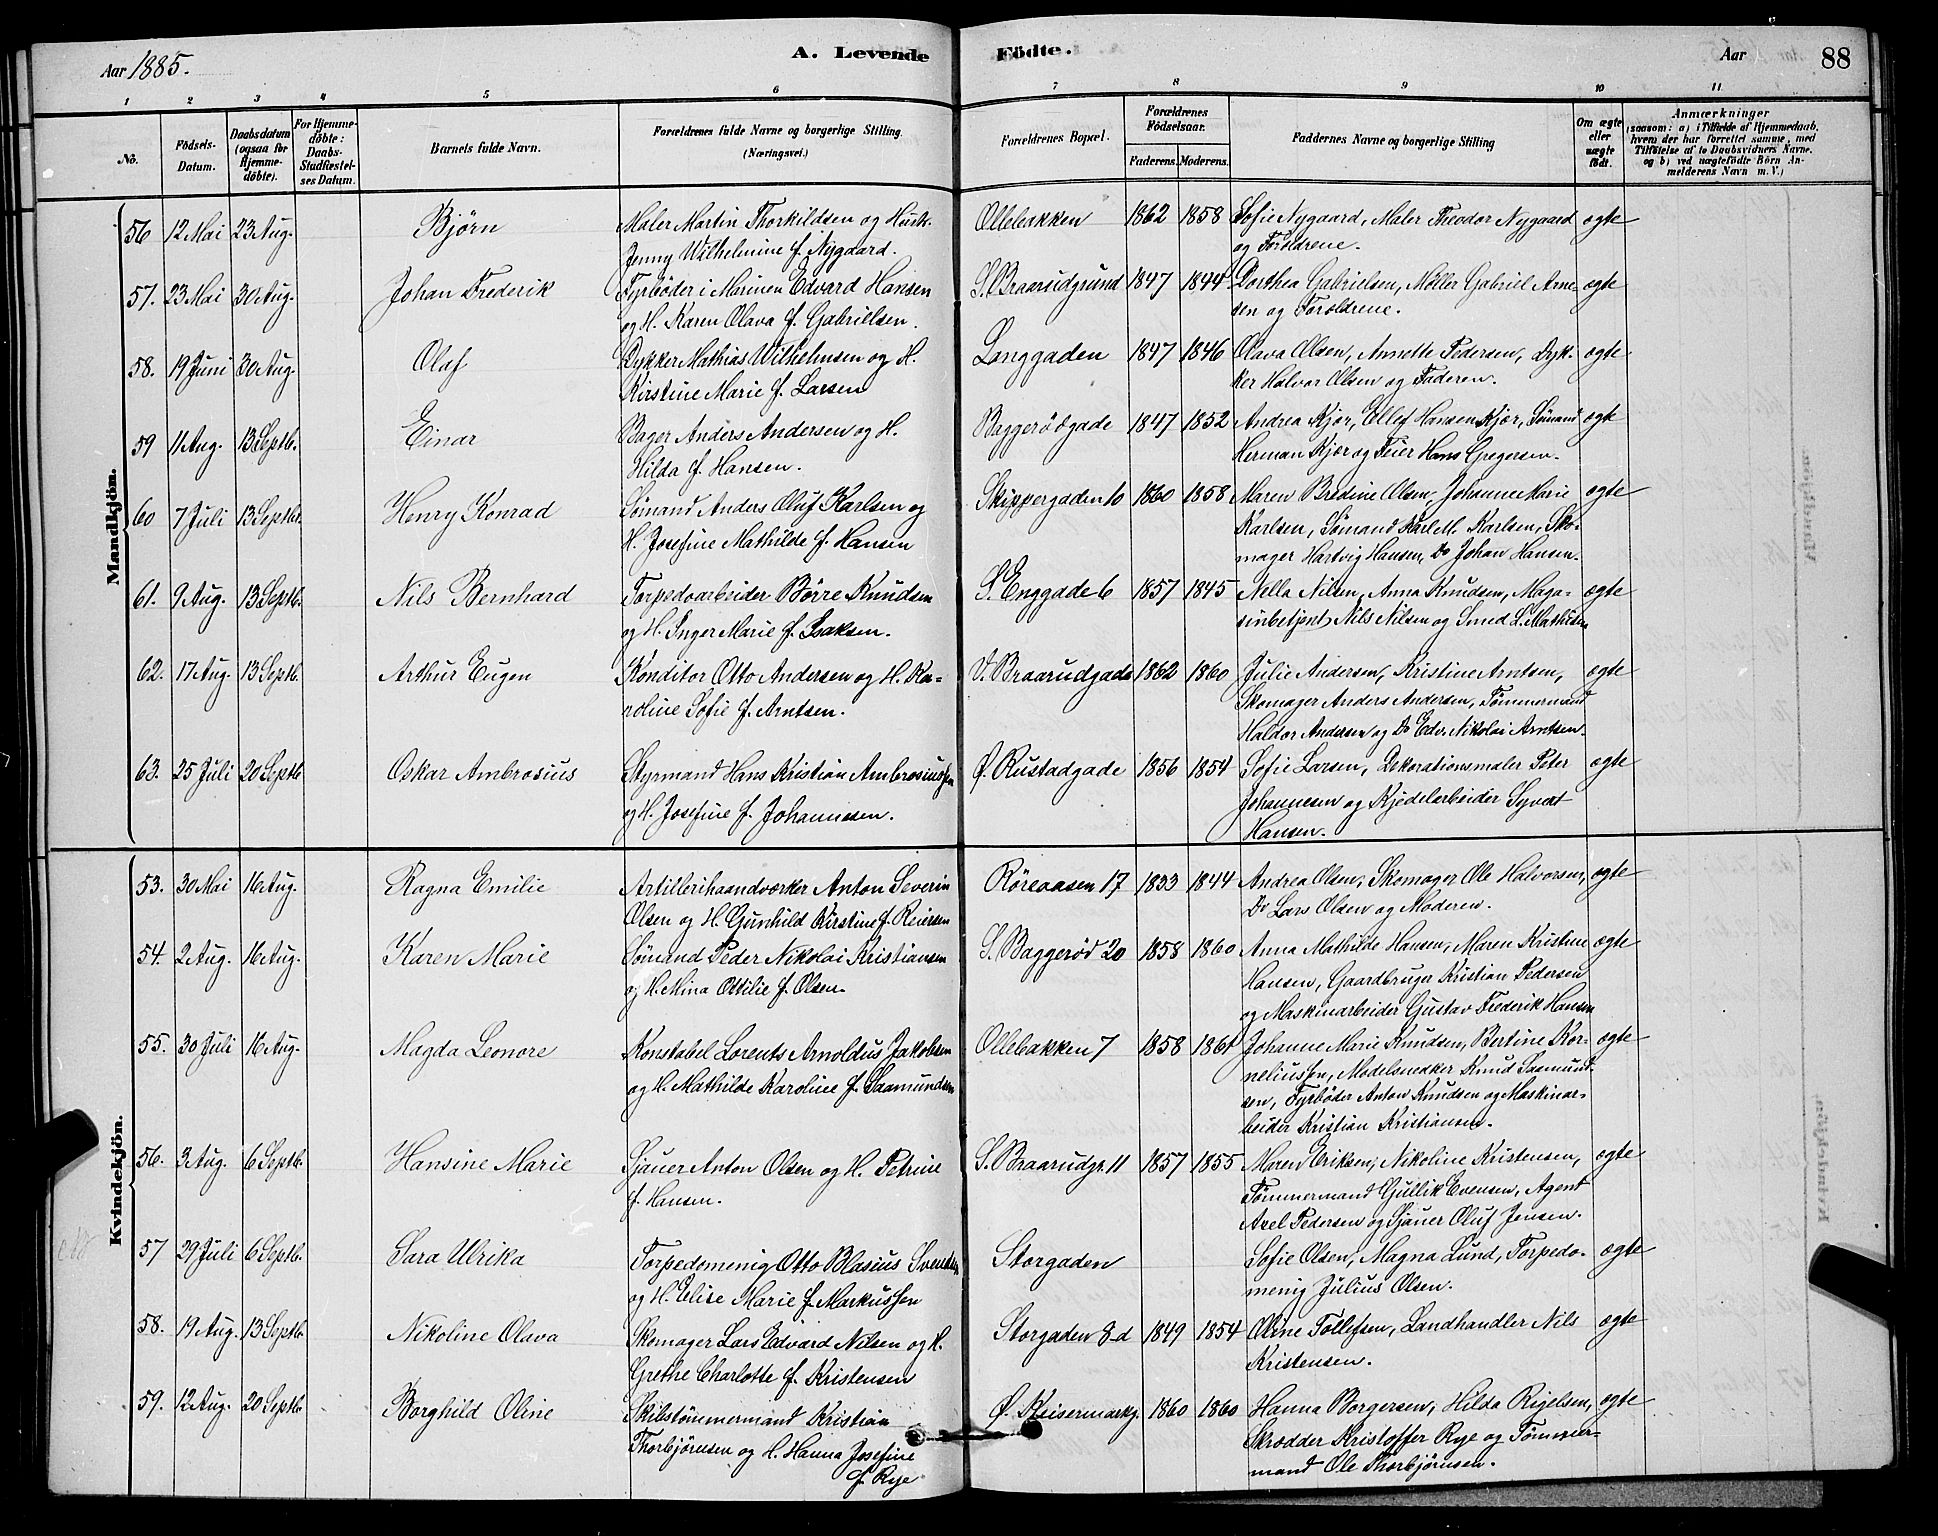 Aar 1885.
A. Levende
Födte.
Aar
88
1 2 3 4 5 6 7 8 9 10 11
No.
Födsels-Datum.
Daabsdatum (ogsaa for Hjemmedöbte).
For Hjemmedöbte: Daabs-Stadfæstelses Datum.
Barnets fulde Navn.
Forældrenes fulde Navne og borgerlige Stilling.
(Næringsvei.)
Forældrenes Bopæl.
Forældrenes Födselsaar.
Faderens. Moderens.
Faddernes Navne og borgerlige Stilling
Om ægte eller uægte födt.
Anmærkninger
(saasom: a) i Tilfælde af Hjemmedaab,
hvem der har forrettet samme, med
Tilföielse af to Daabsvidners Navne,
og b) ved uægtefödte Börn Anmelderens Navn m. V.)
Mandkjön.
56 12 Mai 23 Aug. Bjørn Maler Martin Thorkildsen og Hust. Ollebakken 1862 1858 Sofie Nygaard, Maler Theodor Nygaard ægte
Jenny Wilhelmine f. Nygaard. og Forældrene.
57. 23 Mai 30 Aug. Johan Frederik Fyrbøder i Marinen Edvard Hansen S. Braarudgrund 1847 1844 Dorthea Gabrielsen, Møller Gabriel Arne- ægte
og H. Karen Olava f. Gabrielsen. sen og Forældrene.
58. 19 Juni 30 Aug. Olaf Dykker Mathias Wilhelmsen og H. Langgaden 1847 1846 Olava Olsen, Annette Pedersen, Dyk- ægte
Kirstine Marie f. Larsen ker Halvor Olsen og Faderen.
59 11 Aug. 13 Septb. Einar Bager Anders Andersen og H. Baggerödgade 1847 1852 Andrea Kjær, Ellef Hansen Kjær, Sömand ægte
Hilda f. Hansen. Herman Kjær og Feier Hans Gregersen.
60 7 Juli 13 Septb. Henry Konrad Sömand Anders Oluf Karlsen og Skippergaden 10 1860 1858 Maren Bredine Olsen, Johanne Marie ægte
H. Josefine Mathilde f. Hansen Karlsen, Sömand Karl M. Karlsen, Sko-
mager Hartvig Hansen, Do Johan Hansen.
61. 9 Aug. 13 Septb. Nils Bernhard Torpedoarbeider Börre Knudsen S. Enggade 6 1857 1845 Nella Nilsen, Anna Knudsen, Maga- ægte
og H. Inger Marie f. Isaksen. sinbetjent Nils Nilsen og Smed L. Mathisen
62. 17 Aug. 13 Septb. Arthur Eugen Konditor Otto Andersen og H. Ka- V. Braarudgade 1862 1860 Julie Andersen, Kristine Arntsen, ægte
roline Sofie f. Arntsen. Skomager Anders Andersen, Tömmermand
Haldor Andersen og Do Edv. Nikolai Arntsen.
63. 25 Juli 20 Septb Oskar Ambrosius Styrmand Hans Kristian Ambrosiussen Ø. Rustadgade 1856 1854 Sofie Larsen, Dekorationsmaler Peter ægte
og H. Josefine f. Johannesen. Johannesen og Kjedelarbeider Syvert
Hansen.
Kvindekjön.
53. 30 Mai 16 Aug. Ragna Emilie Artillerihaandværker Anton Severin Røreaasen 17 1833 1844 Andrea Olsen, Skomager Ole Halvorsen, ægte
Olsen og H. Gunhild Kirstine f. Reiersen Do Lars Olsen og Moderen.
54. 2 Aug. 16 Aug. Karen Marie Sömand Peder Nikolai Kristiansen S. Baggerød 20 1858 1860 Anna Mathilde Hansen, Maren Kristine ægte
og H. Mina Ottilie f. Olsen. Hansen, Gaardbruger Kristian Pedersen
og Maskinarbeider Gustav Frederik Hansen
55. 30 Juli 16 Aug. Magda Leonore Konstabel Lorents Arnoldus Jakobsen Ollebakken 7 1858 1861 Johanne Marie Knudsen, Bertine Kor- ægte
og H. Mathilde Karoline f. Saamundsen neliussen, Modelsnedker Knud Saamund-
sen, Fyrbøder Anton Knudsen og Maskinar-
beider Kristian Kristiansen.
56. 3 Aug. 6 Septb. Hansine Marie Sjauer Anton Olsen og H. Petrine S. Braarudgr. 11 1857 1855 Maren Eriksen, Nikoline Kristensen, ægte
f. Hansen. Tömmermand Gullik Evensen, Agent
Axel Pedersen og Sjauer Oluf Jensen.
57 29 Juli 6 Septb. Sara Ulrika Torpedomenig Otto Blasius Svendsen Storgaden Sofie Olsen, Magna Lund, Torpedo- ægte
og H. Elise Marie f. Markussen menig Julius Olsen.
58. 19 Aug. 13 Septb. Nikoline Olava Skomager Lars Edvard Nilsen og H. Storgaden 8-d 1849 1854 Oline Tollefsen, Landhandler Nils ægte
Grethe Charlotte f. Kristensen Kristensen.
59. 12 Aug. 20 Septb Borghild Oline Skibstömmermand Kristian Ø. Keisermarkg. 1860 1860 Hanna Borgersen, Hilda Rigelsen, ægte
Thorbjörnsen og H. Hanna Josefine Skrædder Kristoffer Rye og Tömmer-
f. Rye mand Ole Thorbjörnsen.